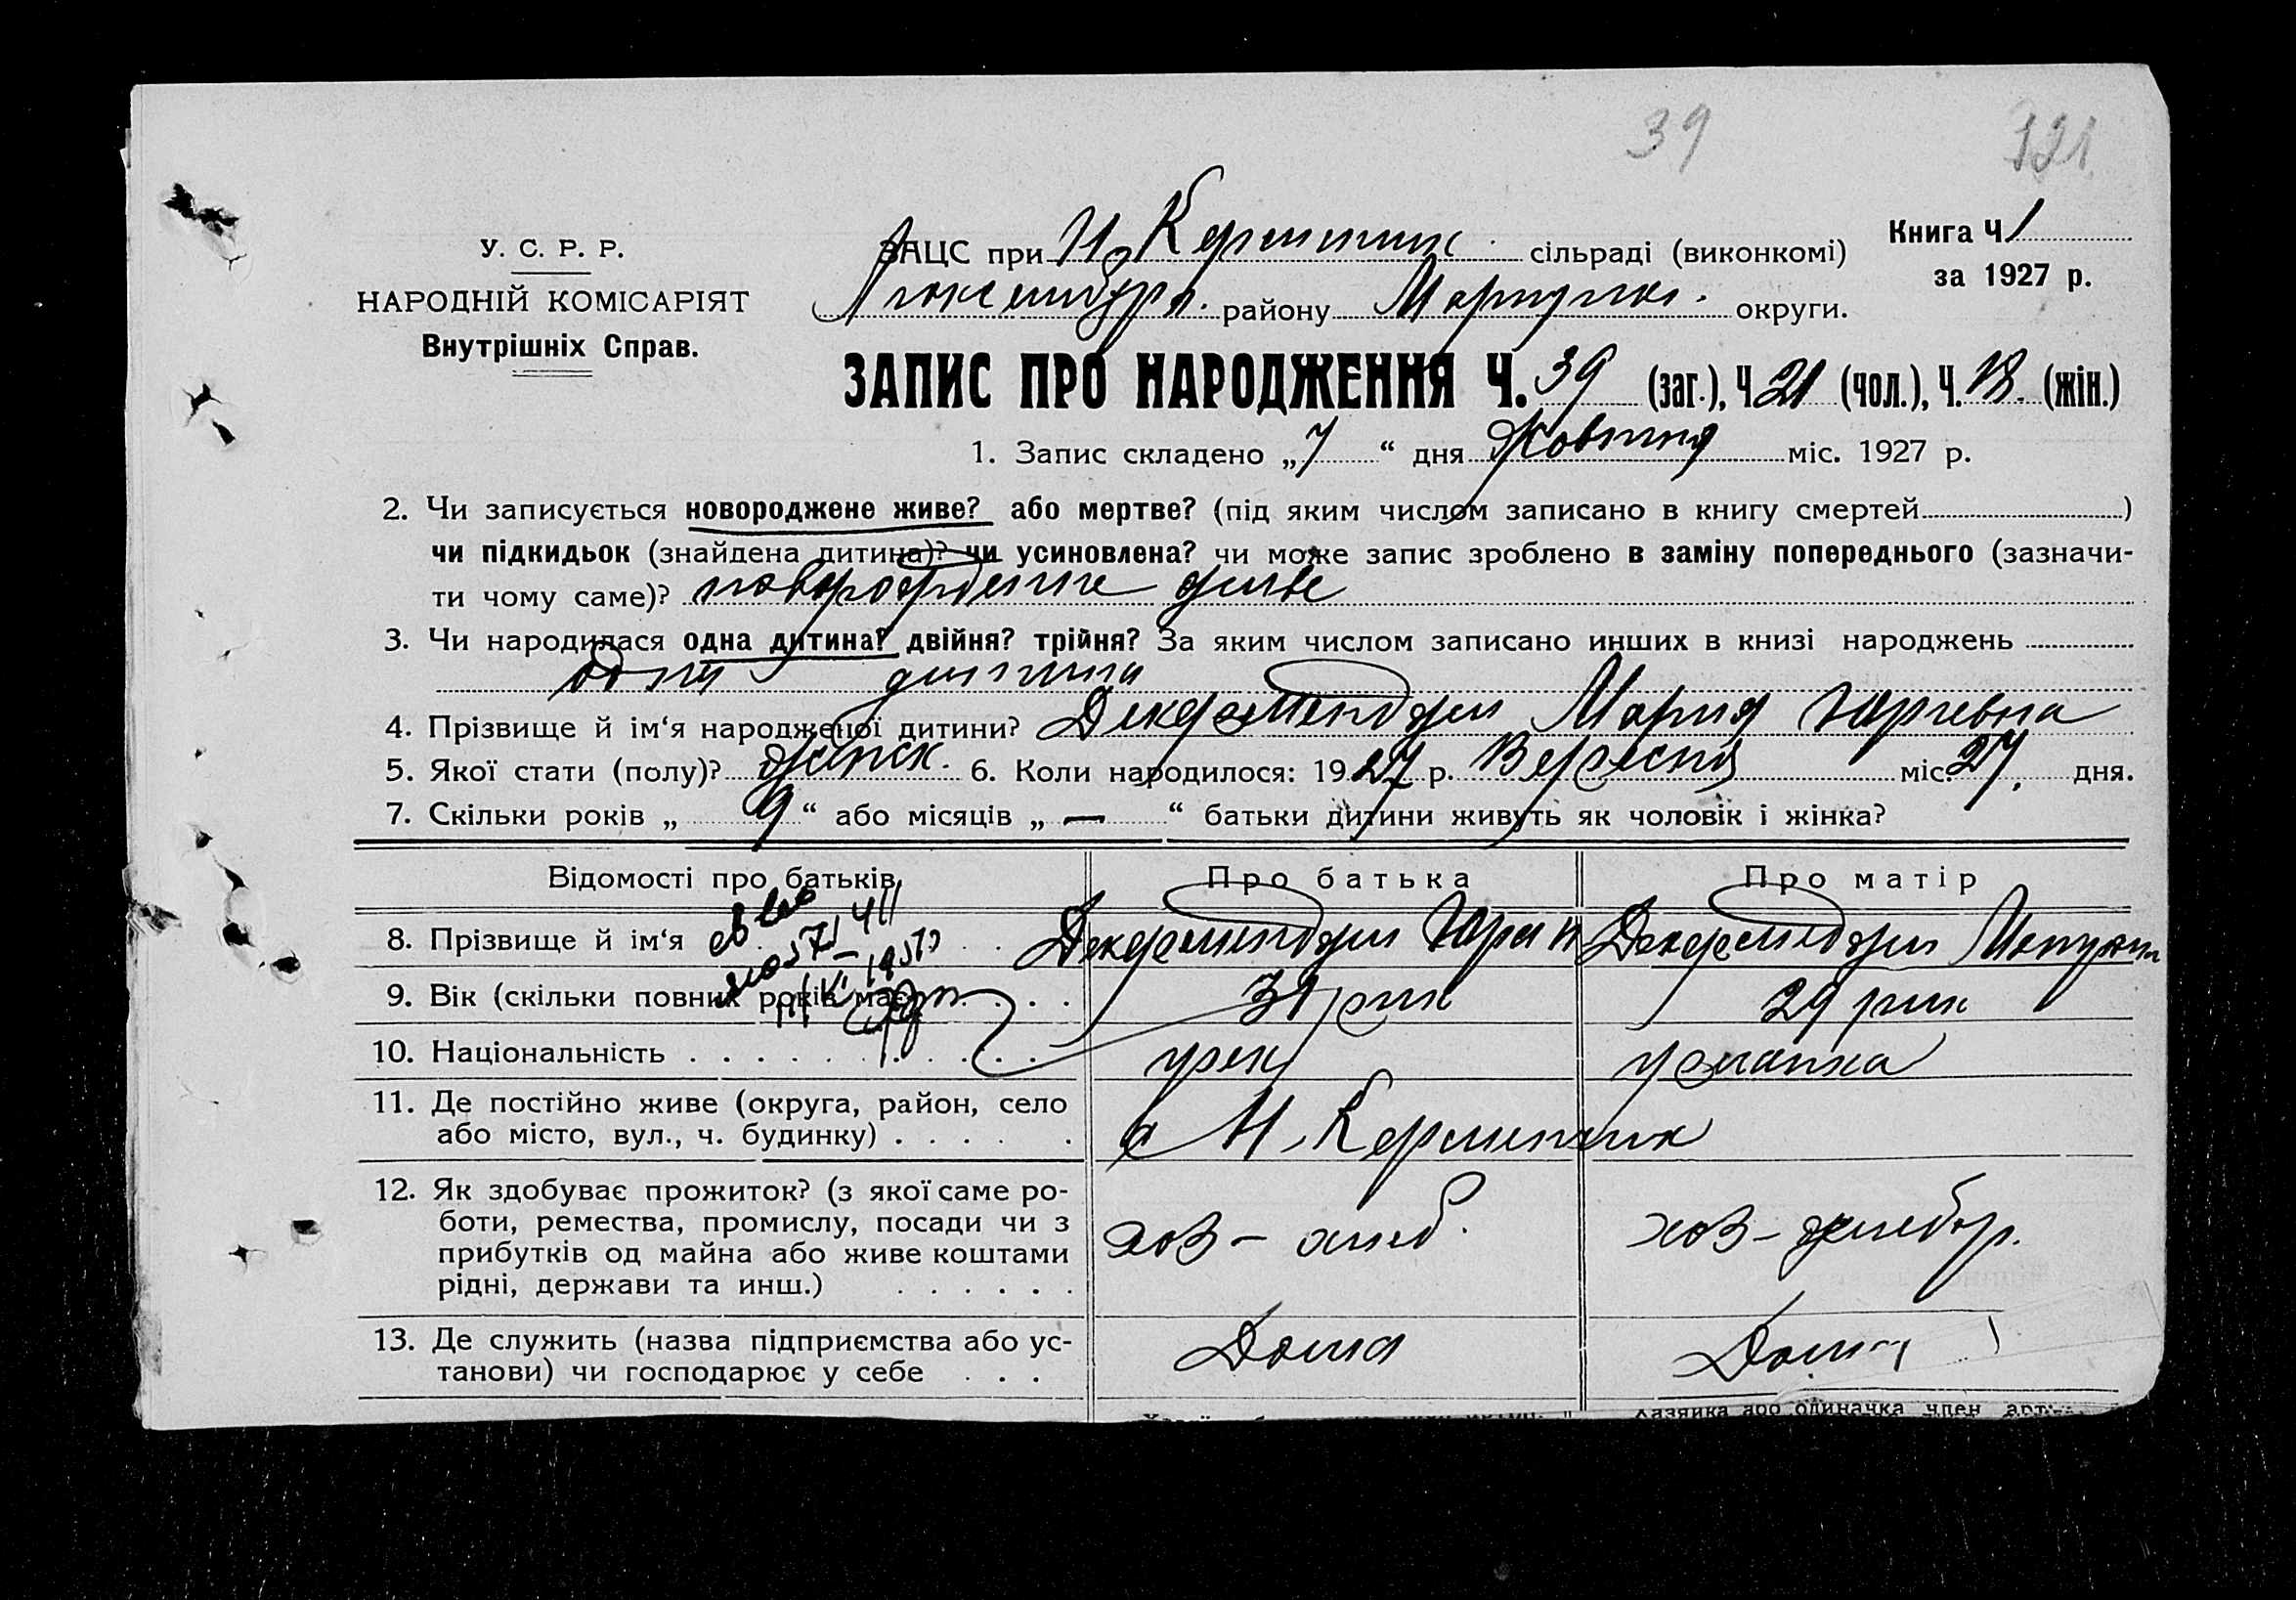 39 121
У. С. Р. Р.
НАРОДНІЙ КОМІСАРІЯТ
Внутрішніх Справ.
ЗАЦС при Н Керменчик. сільраді (виконкомі)
Люксембур. району Маріупил. округи.
Книга Ч 1
за 1927 р.
ЗАПИС ПРО НАРОДЖЕННЯ Ч. 39 (заг.), Ч 21 (чол.), Ч. 18. (жін.)
1. Запис складено „7“ дня Жовтня міс. 1927 р.
2. Чи записується новороджене живе? або мертве? (під яким числом записано в книгу смертей )
чи підкидьок (знайдена дитина)? чи усиновлена? чи може запис зроблено в заміну попереднього (зазначи-
ти чому саме)? новорожденне живе
3. Чи народилася одна дитина? двійня? трійня? За яким числом записано инших в книзі народжень
одна дитина
4. Прізвище й ім‘я народженої дитини? Декерменджи Мария Юриевна
5. Якої стати (полу)? жінск. 6. Коли народилося: 1927 р. Вересня міс. 27. дня.
7. Скільки років „ 9 “ або місяців „ — “ батьки дитини живуть як чоловік і жінка?
Відомості про батьків Про батька Про матір
8. Прізвище й ім‘я Декерменджи Декерменджи
9. Вік (скільки повних років має) 31 рик 29 рик
10. Національність грек
11. Де постійно живе (округа, район, село
або місто, вул., ч. будинку) с Н. Керменчик
12. Як здобуває прожиток? (з якої саме ро-
боти, ремества, промислу, посади чи з
прибутків од майна або живе коштами
рідні, держави та инш.)
хоз - хлеб. хоз -
13. Де служить (назва підприємства або ус-
танови) чи господарює у себе Дома Дома